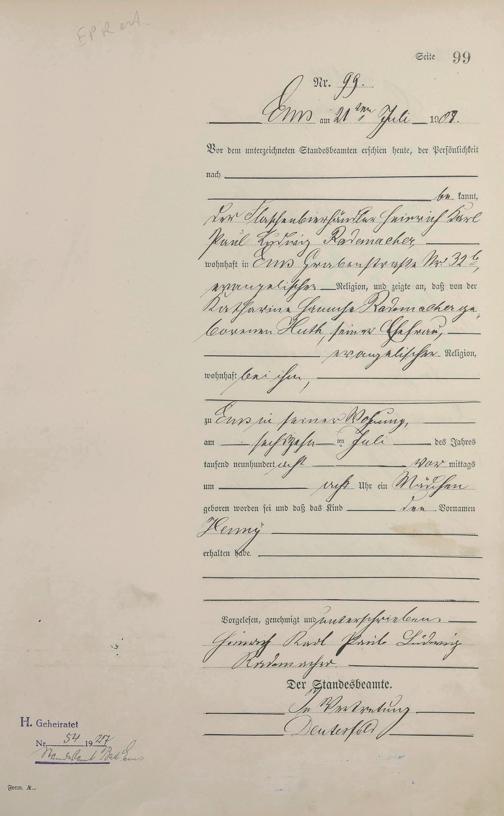 Seite 99
Nr. 99.
Ems am 21ten Juli 1908.
Vor dem unterzeichneten Standesbeamten erschien heute, der Persönlichkeit
nach
be kannt,
der Flaschenbierhändler Heinrich Karl
Paul Ludwig Rademacher,
wohnhaft in Ems Grabenstraße Nr 32b,
evangelischer Religion, und zeigte an, daß von der
Katharine Rademacher ge-
borenen Huth, seiner Ehefrau,
evangelischer Religion,
wohnhaft bei ihm,
zu Ems in seiner Wohnung,
am sechszehn ten Juli des Jahres
tausend neunhundert acht vor mittags
um acht Uhr ein Mädchen
geboren worden sei und daß das Kind den Vornamen
Henny
erhalten habe.
Vorgelesen, genehmigt und unterschrieben.
Heinrich Karl Paul Ludwig
Rademacher
Der Standesbeamte.
In Vertretung
H. Geheiratet
Nr. 54 1927
Standesamt Bad Ems
Form. A.